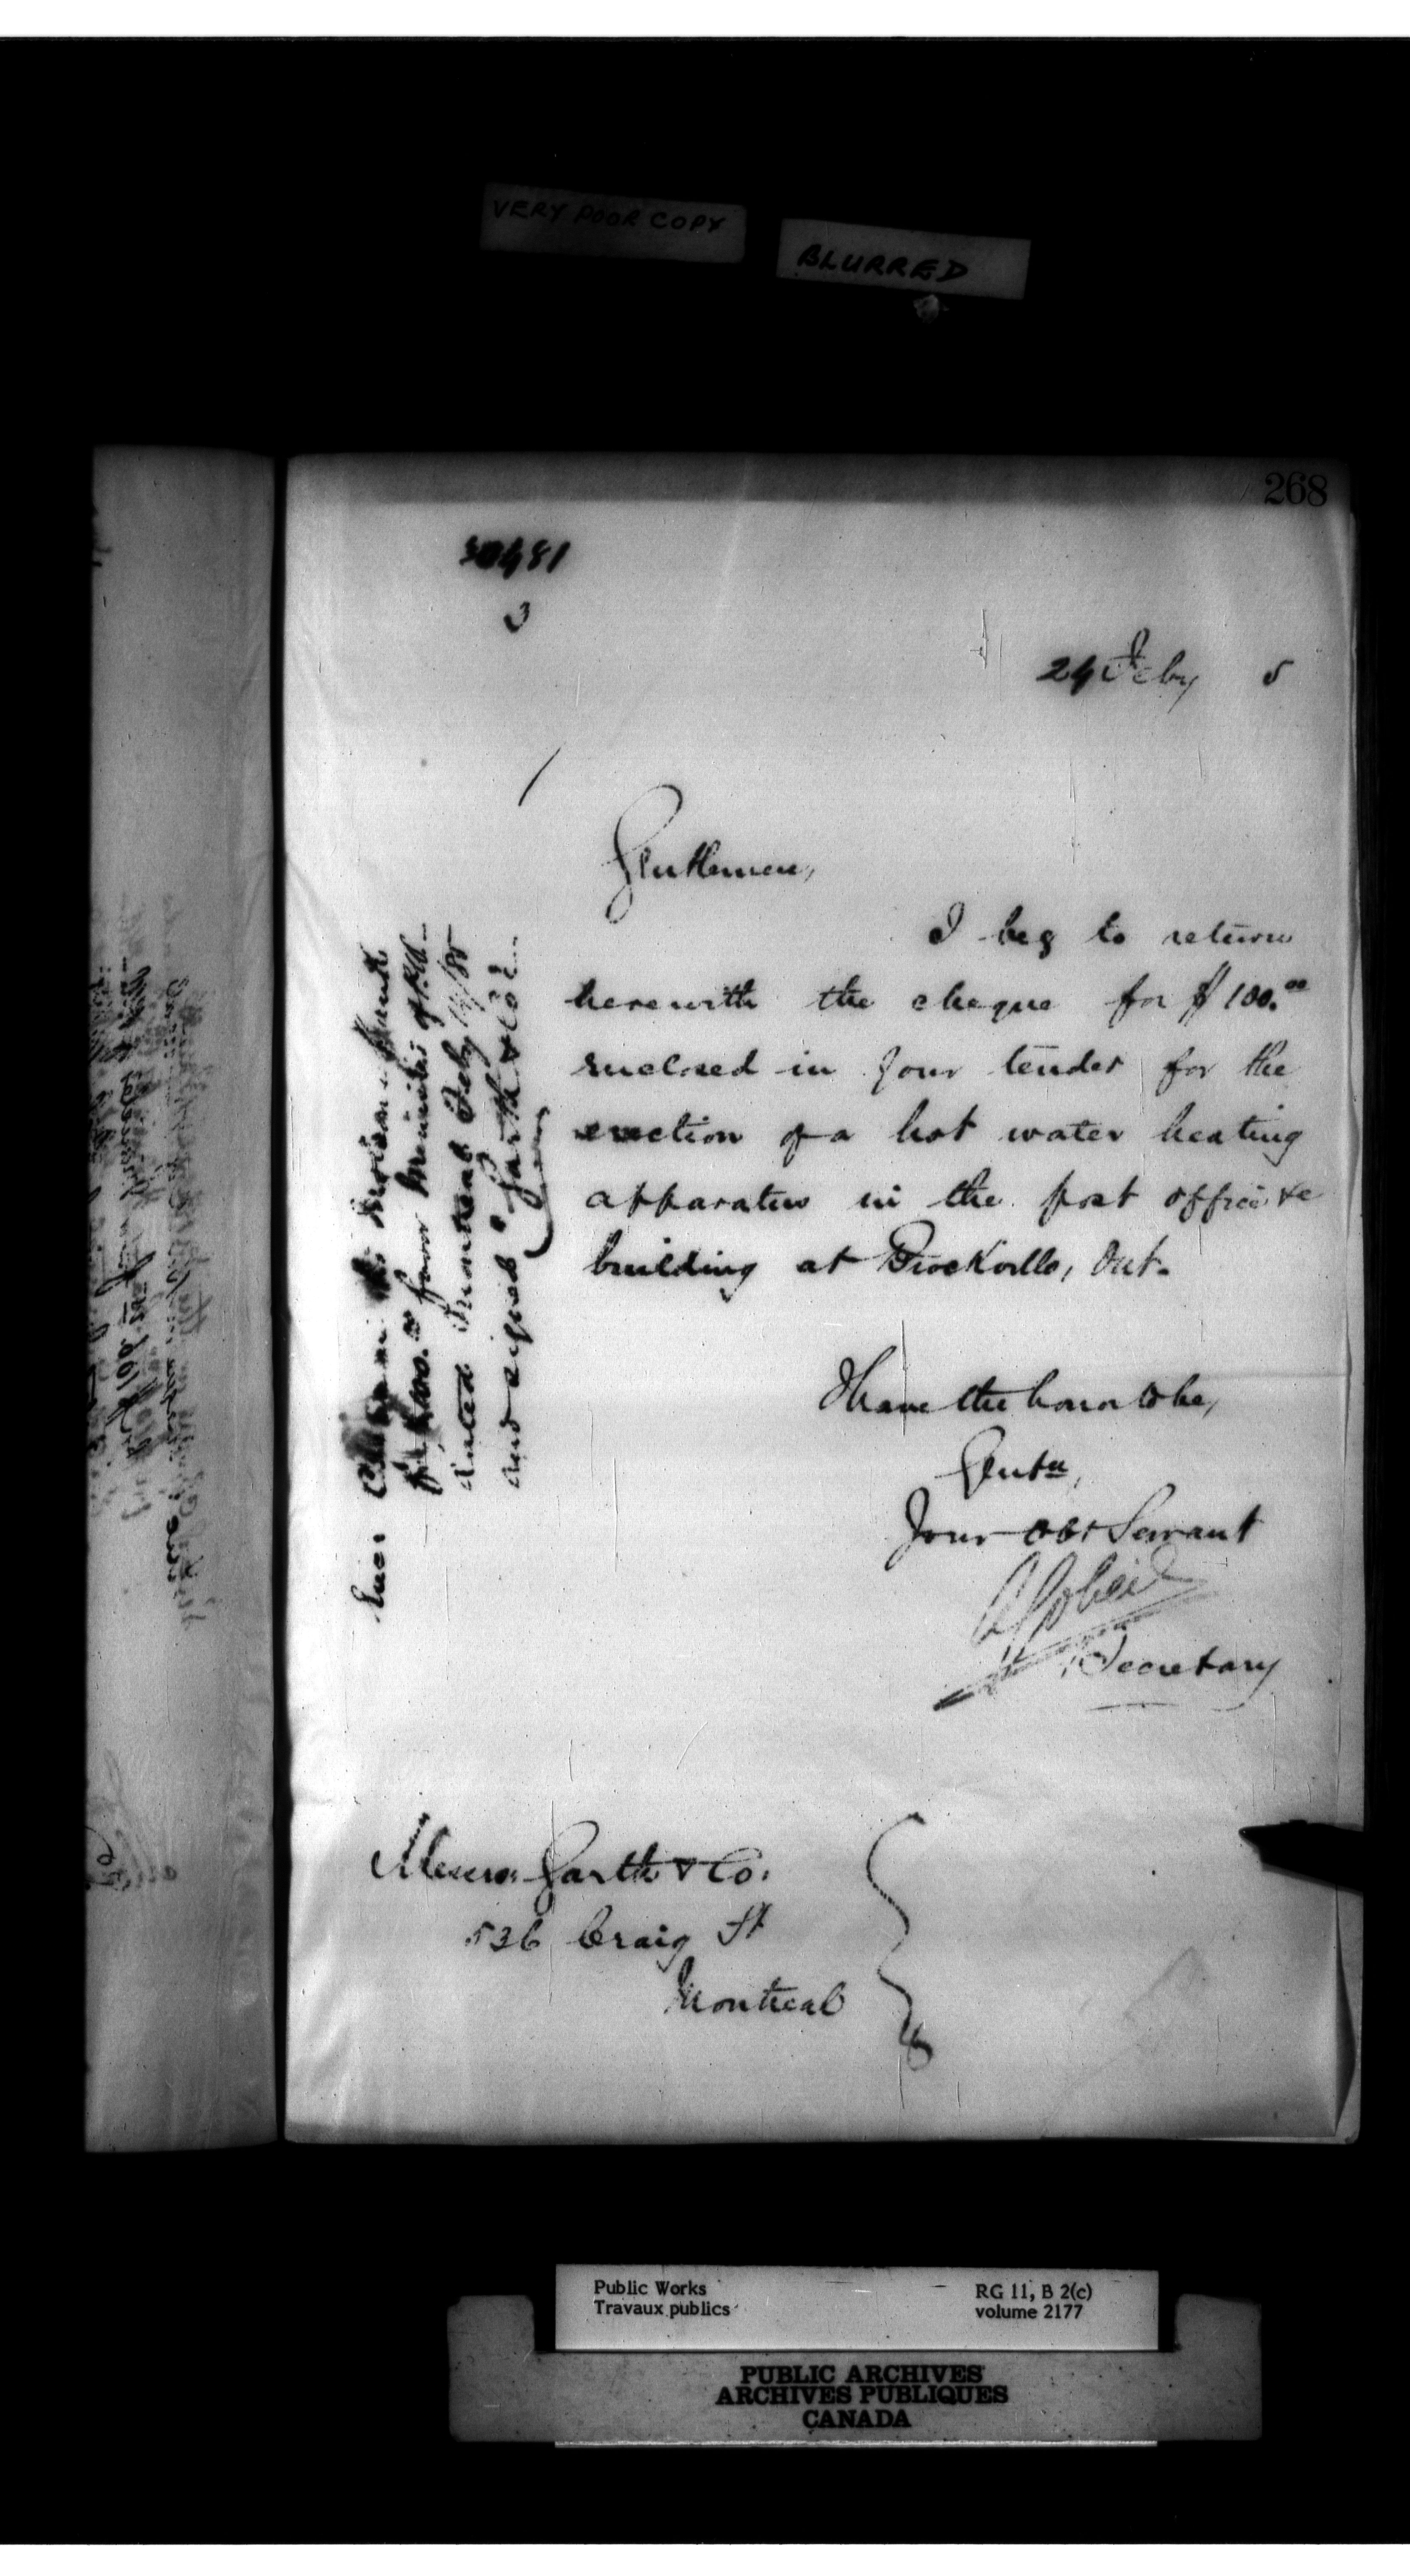 VERY POOR COPY
BLURRED
268
30481
3
24 Feby 5
Gentlemen,
I beg to return
herewith the cheque for $100.00
enclosed in your tender for the
erection of a hot water heating
apparatus in the post office &c
building at Brockville, Ont.
I have the honor to be,
Gentn,
Your obt Servant
A Gobeil
Secretary
for $100.00 favor Minister of P.W.
dated Montreal Feby /85
and signed "Garth & Co".
Messrs. Garth & Co.
536 Craig St
Montreal
Public Works
Travaux publics
RG 11, B 2(c)
volume 2177
PUBLIC ARCHIVES
ARCHIVES PUBLIQUES
CANADA